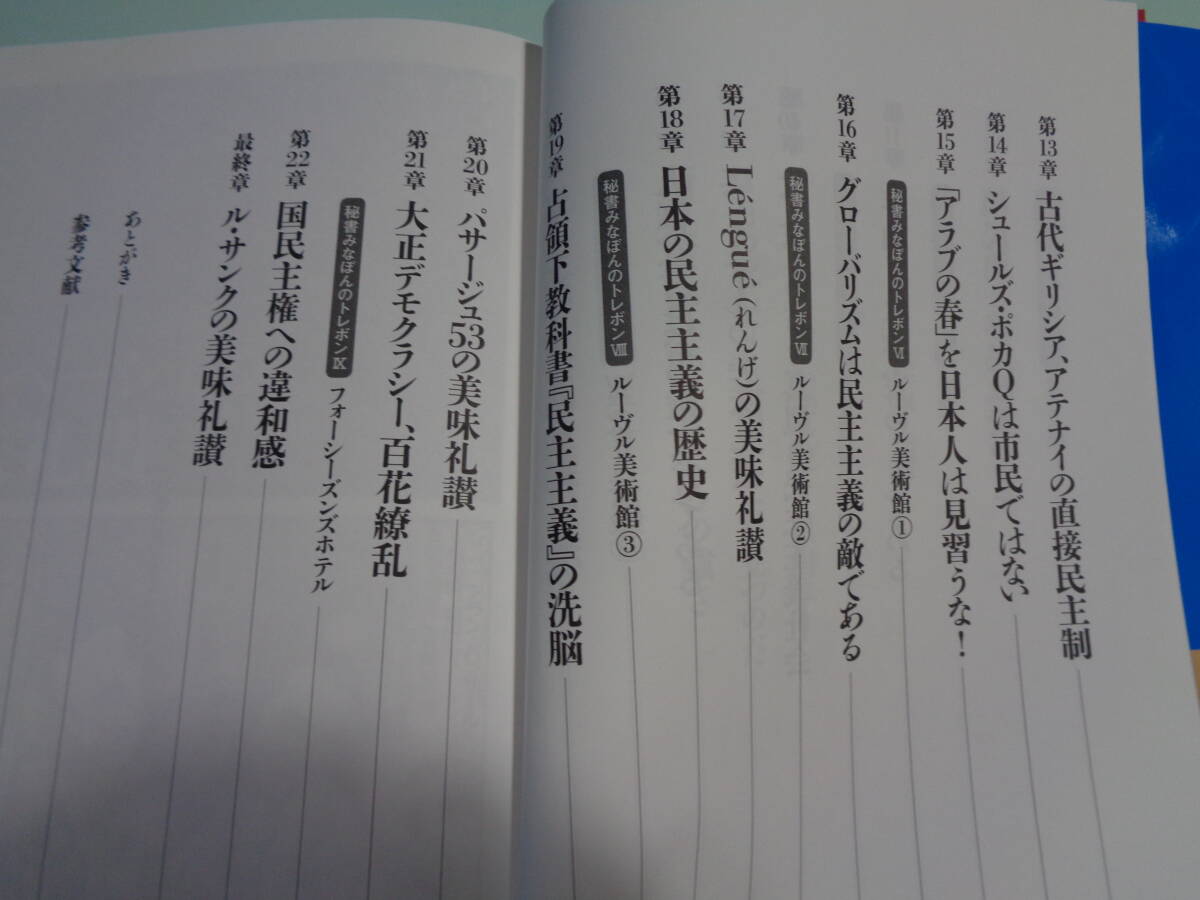 第13章 古代ギリシア、アテナイの直接民主制
第14章 シュールズ・ポカQは市民ではない
第15章 「アラブの春」を日本人は見習うな！
秘書みなぽんのトレボンⅥ ルーヴル美術館①
第16章 グローバリズムは民主主義の敵である
秘書みなぽんのトレボンⅦ ルーヴル美術館②
第17章 Léngué（れんげ）の美味礼讃
第18章 日本の民主主義の歴史
秘書みなぽんのトレボンⅧ ルーヴル美術館③
第19章 占領下教科書『民主主義』の洗脳
第20章 パサージュ53の美味礼讃
第21章 大正デモクラシー、百花繚乱
秘書みなぽんのトレボンⅨ フォーシーズンズホテル
第22章 国民主権への違和感
最終章 ル・サンクの美味礼讃
あとがき
参考文献